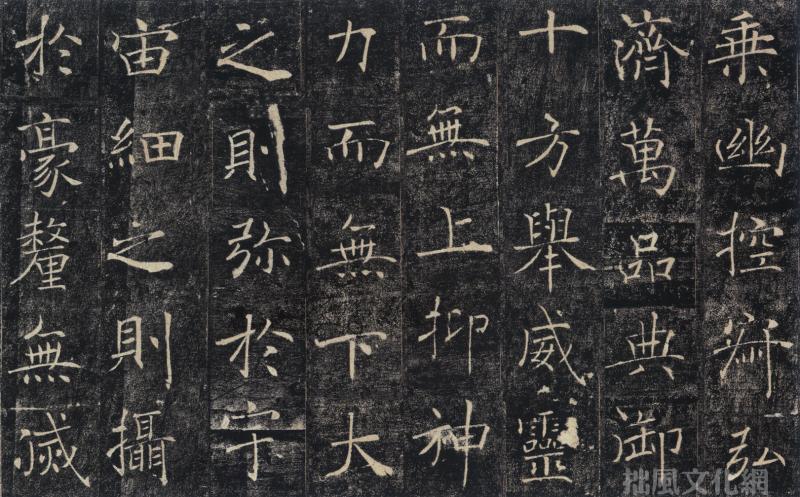 乗幽控寂弘
濟萬品典御
十方舉威靈
而無上抑神
力而無下大
之則弥於宇
宙細之則攝
於豪釐無滅
拙風文化網